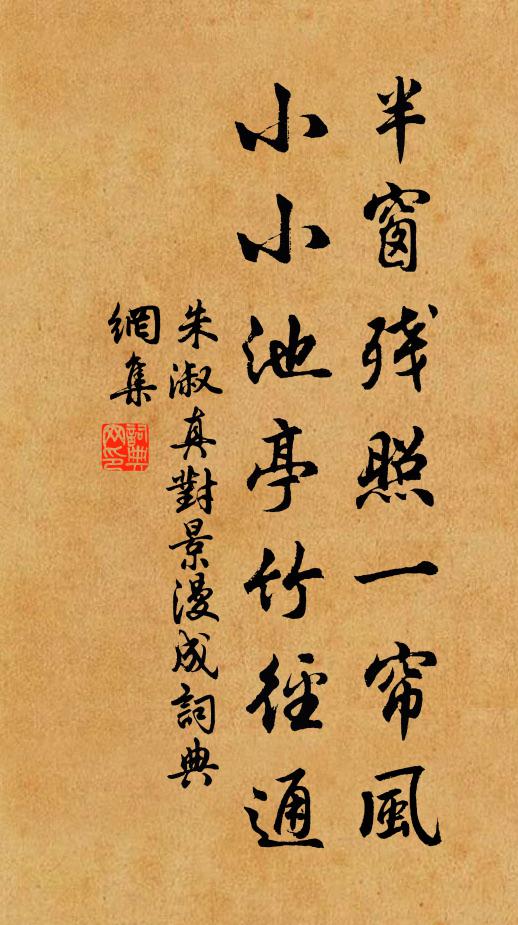 半窗残照一帘風
小小池亭竹徑通
朱淑真對景漫成詞典
網集
詞典
网印